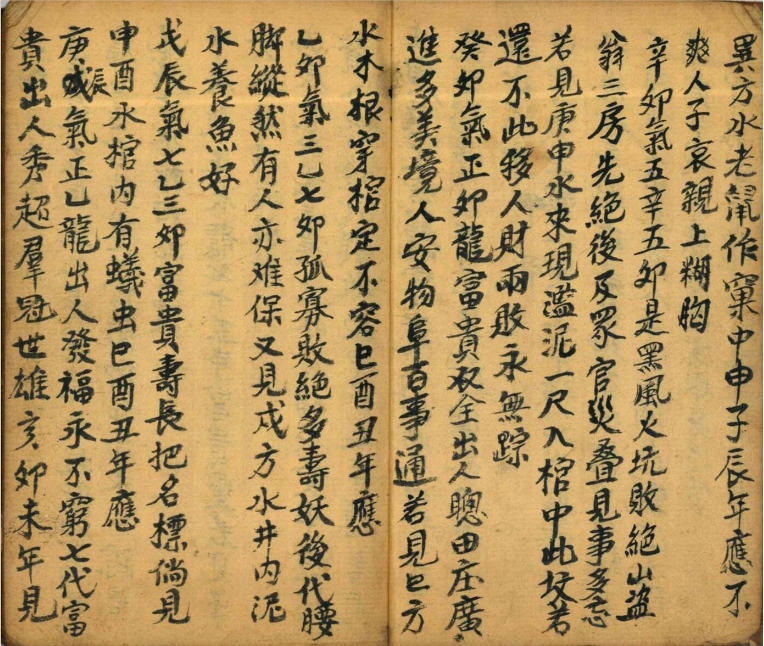 異方水老鼠作窠中申子辰年應不
爽人子哀親上糊胸
辛卯氣五辛五卯是黑風火坑敗絶山盜
翁三房先絶後及眾官災叠見事多忘
若見庚申水來現濫泥一尺入棺中此坟若
還不此移人財兩敗永無踪
癸卯氣正卯龍富貴双全出人聰田庄廣
進多美境人安物阜百事通若見巳方
水木根穿棺定不容巳酉丑年應
乙卯氣三乙七卯孤寡敗絶多壽妖後代腰
脚縱然有人亦难保又見戍方水井内泥
水養魚好
戊辰氣七乙三卯富貴壽長把名標倘見
申酉水棺内有蟻虫巳酉丑年應
庚辰氣正乙龍出人發福永不窮七代富
貴出人秀超羣冠世雄亥卯未年見